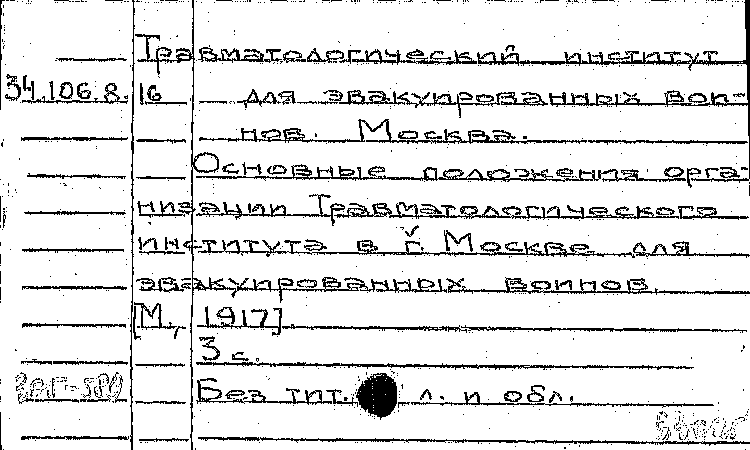 Травматологический институт
34.106.8.16 для эвакуированных вои-
нов. Москва.
Основные положения орга-
низации Травматологического
института в г. Москве для
эвакуированных воинов.
[М., 1917].
3 с.
Без тит. л. и обл.